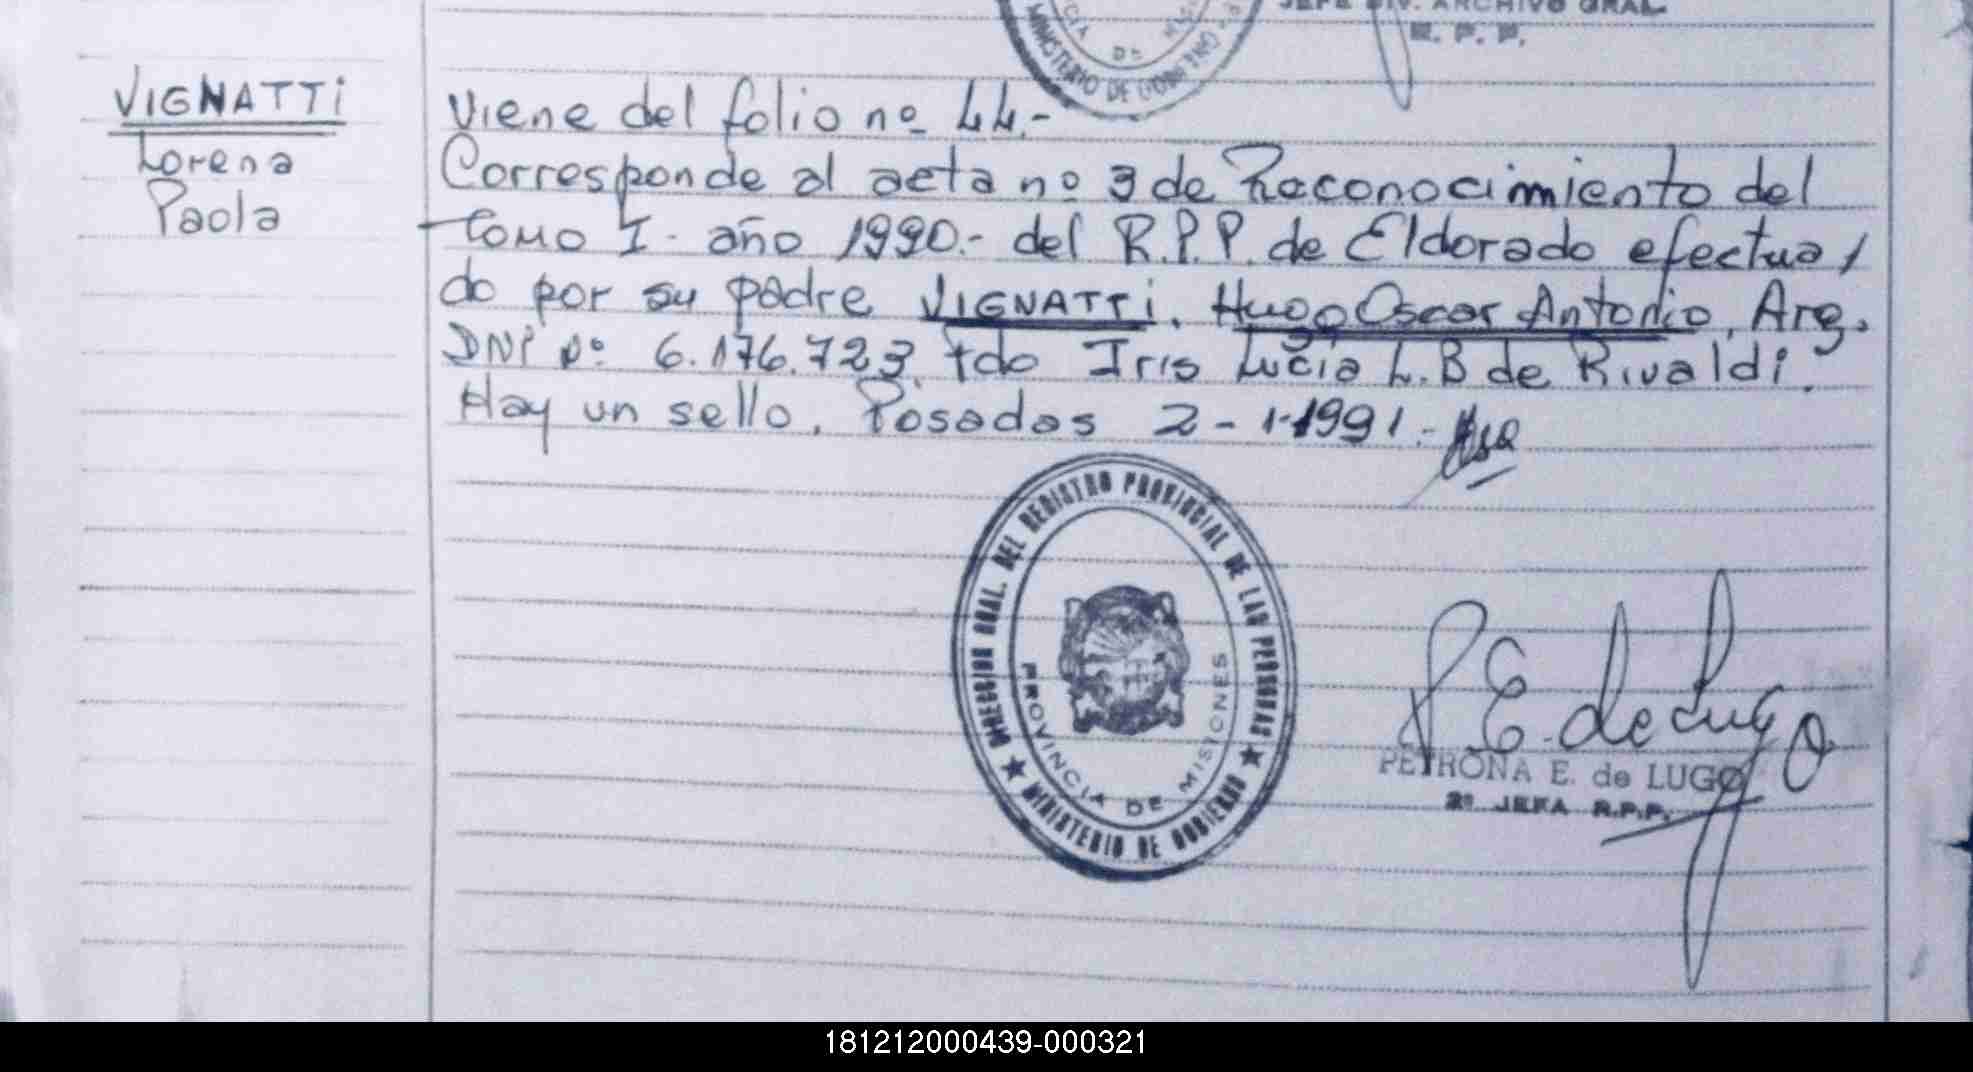 JEFE DIV. ARCHIVO GRAL.
R. P. P.
MINISTERIO DE GOBIERNO
VIGNATTI
Lorena
Paola
Viene del folio nº 44.-
Corresponde al acta nº 3 de Reconocimiento del
Tomo I. año 1990.- del R.P.P. de Eldorado efectua/
do por su padre VIGNATTI. Hugo Oscar Antonio, Arg.
DNI Nº 6.176.723, fdo Iris Lucia L.B de Rivaldi.
Hay un sello. Posadas 2-1-1991.-
DIRECCION GRAL. DEL REGISTRO PROVINCIAL DE LAS PERSONAS
PROVINCIA DE MISIONES
★ MINISTERIO DE GOBIERNO ★
P E. de Lugo
PETRONA E. de LUGO
2º JEFA R.P.P.
181212000439-000321